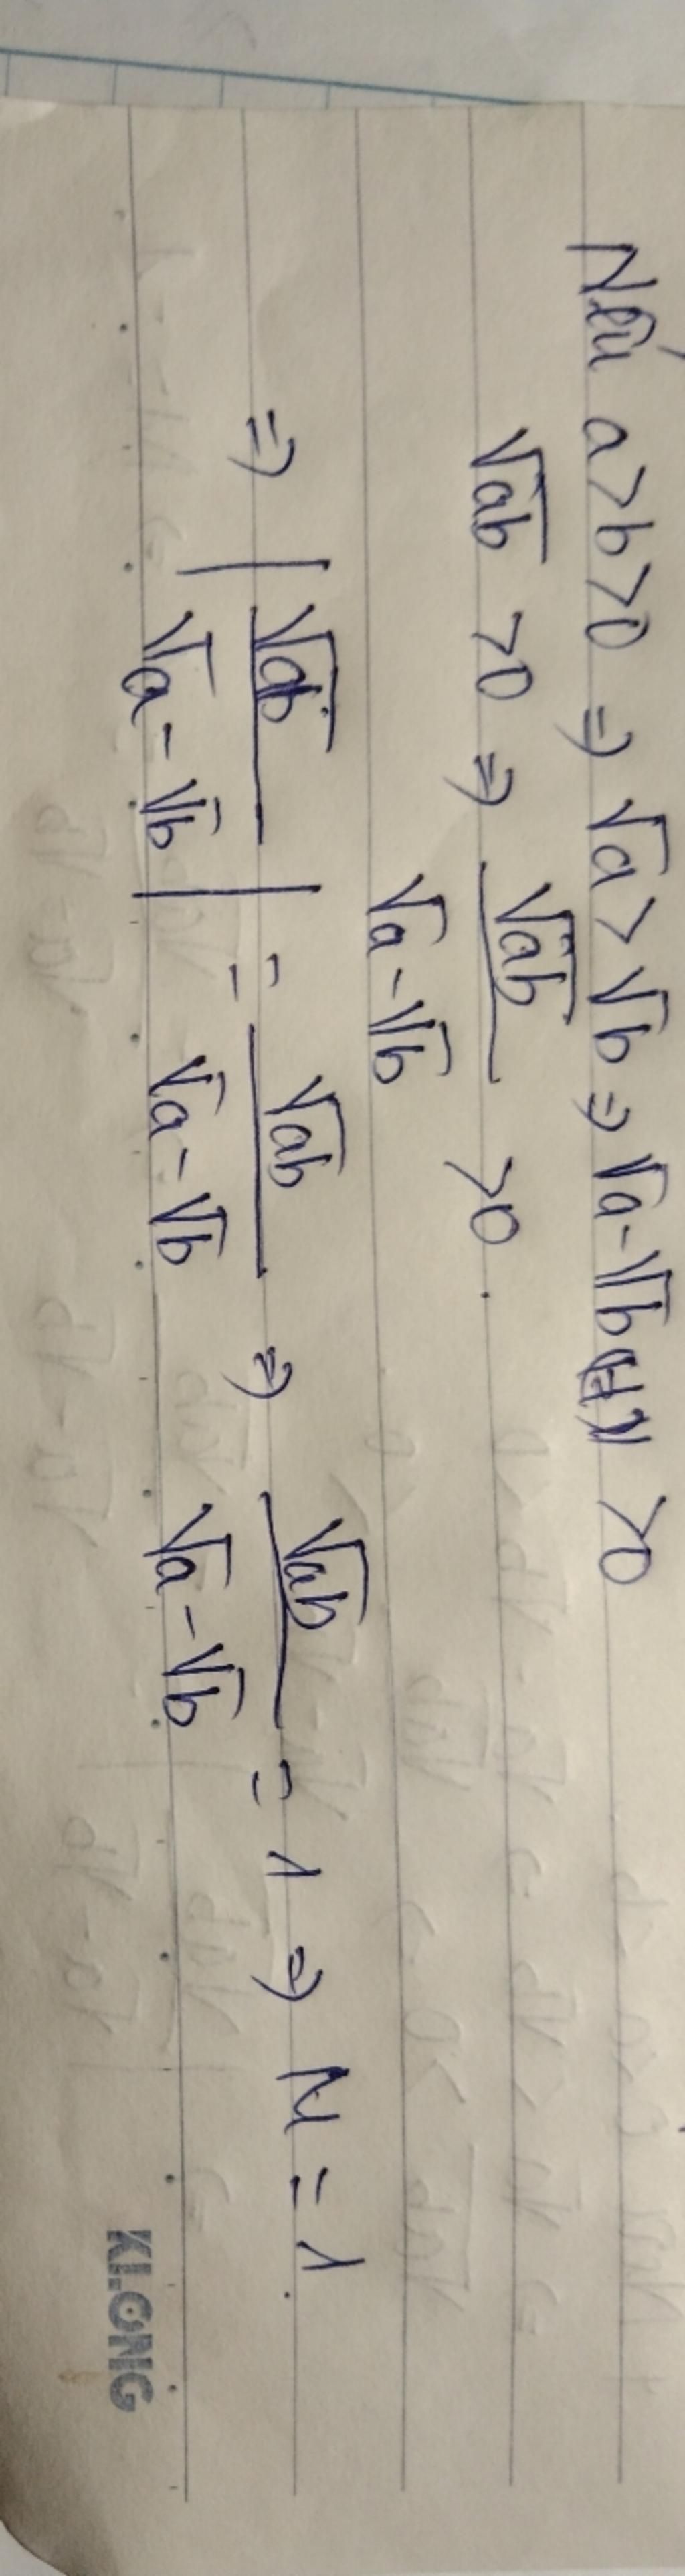 Nếu a>b>0 ⇒ √a > √b ⇒ √a - √b >0
√ab >0 ⇒ √ab / (√a - √b) >0.
⇒ | √ab / (√a - √b) | = √ab / (√a - √b) ⇒ √ab / (√a - √b) = 1 ⇒ N = 1.
KLONG